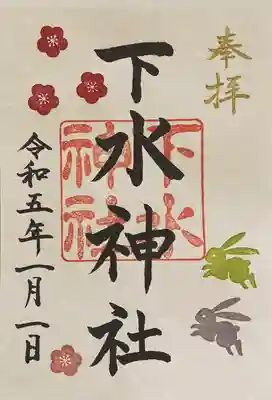 奉拝
下水神社
下水
神社
令和五年一月一日